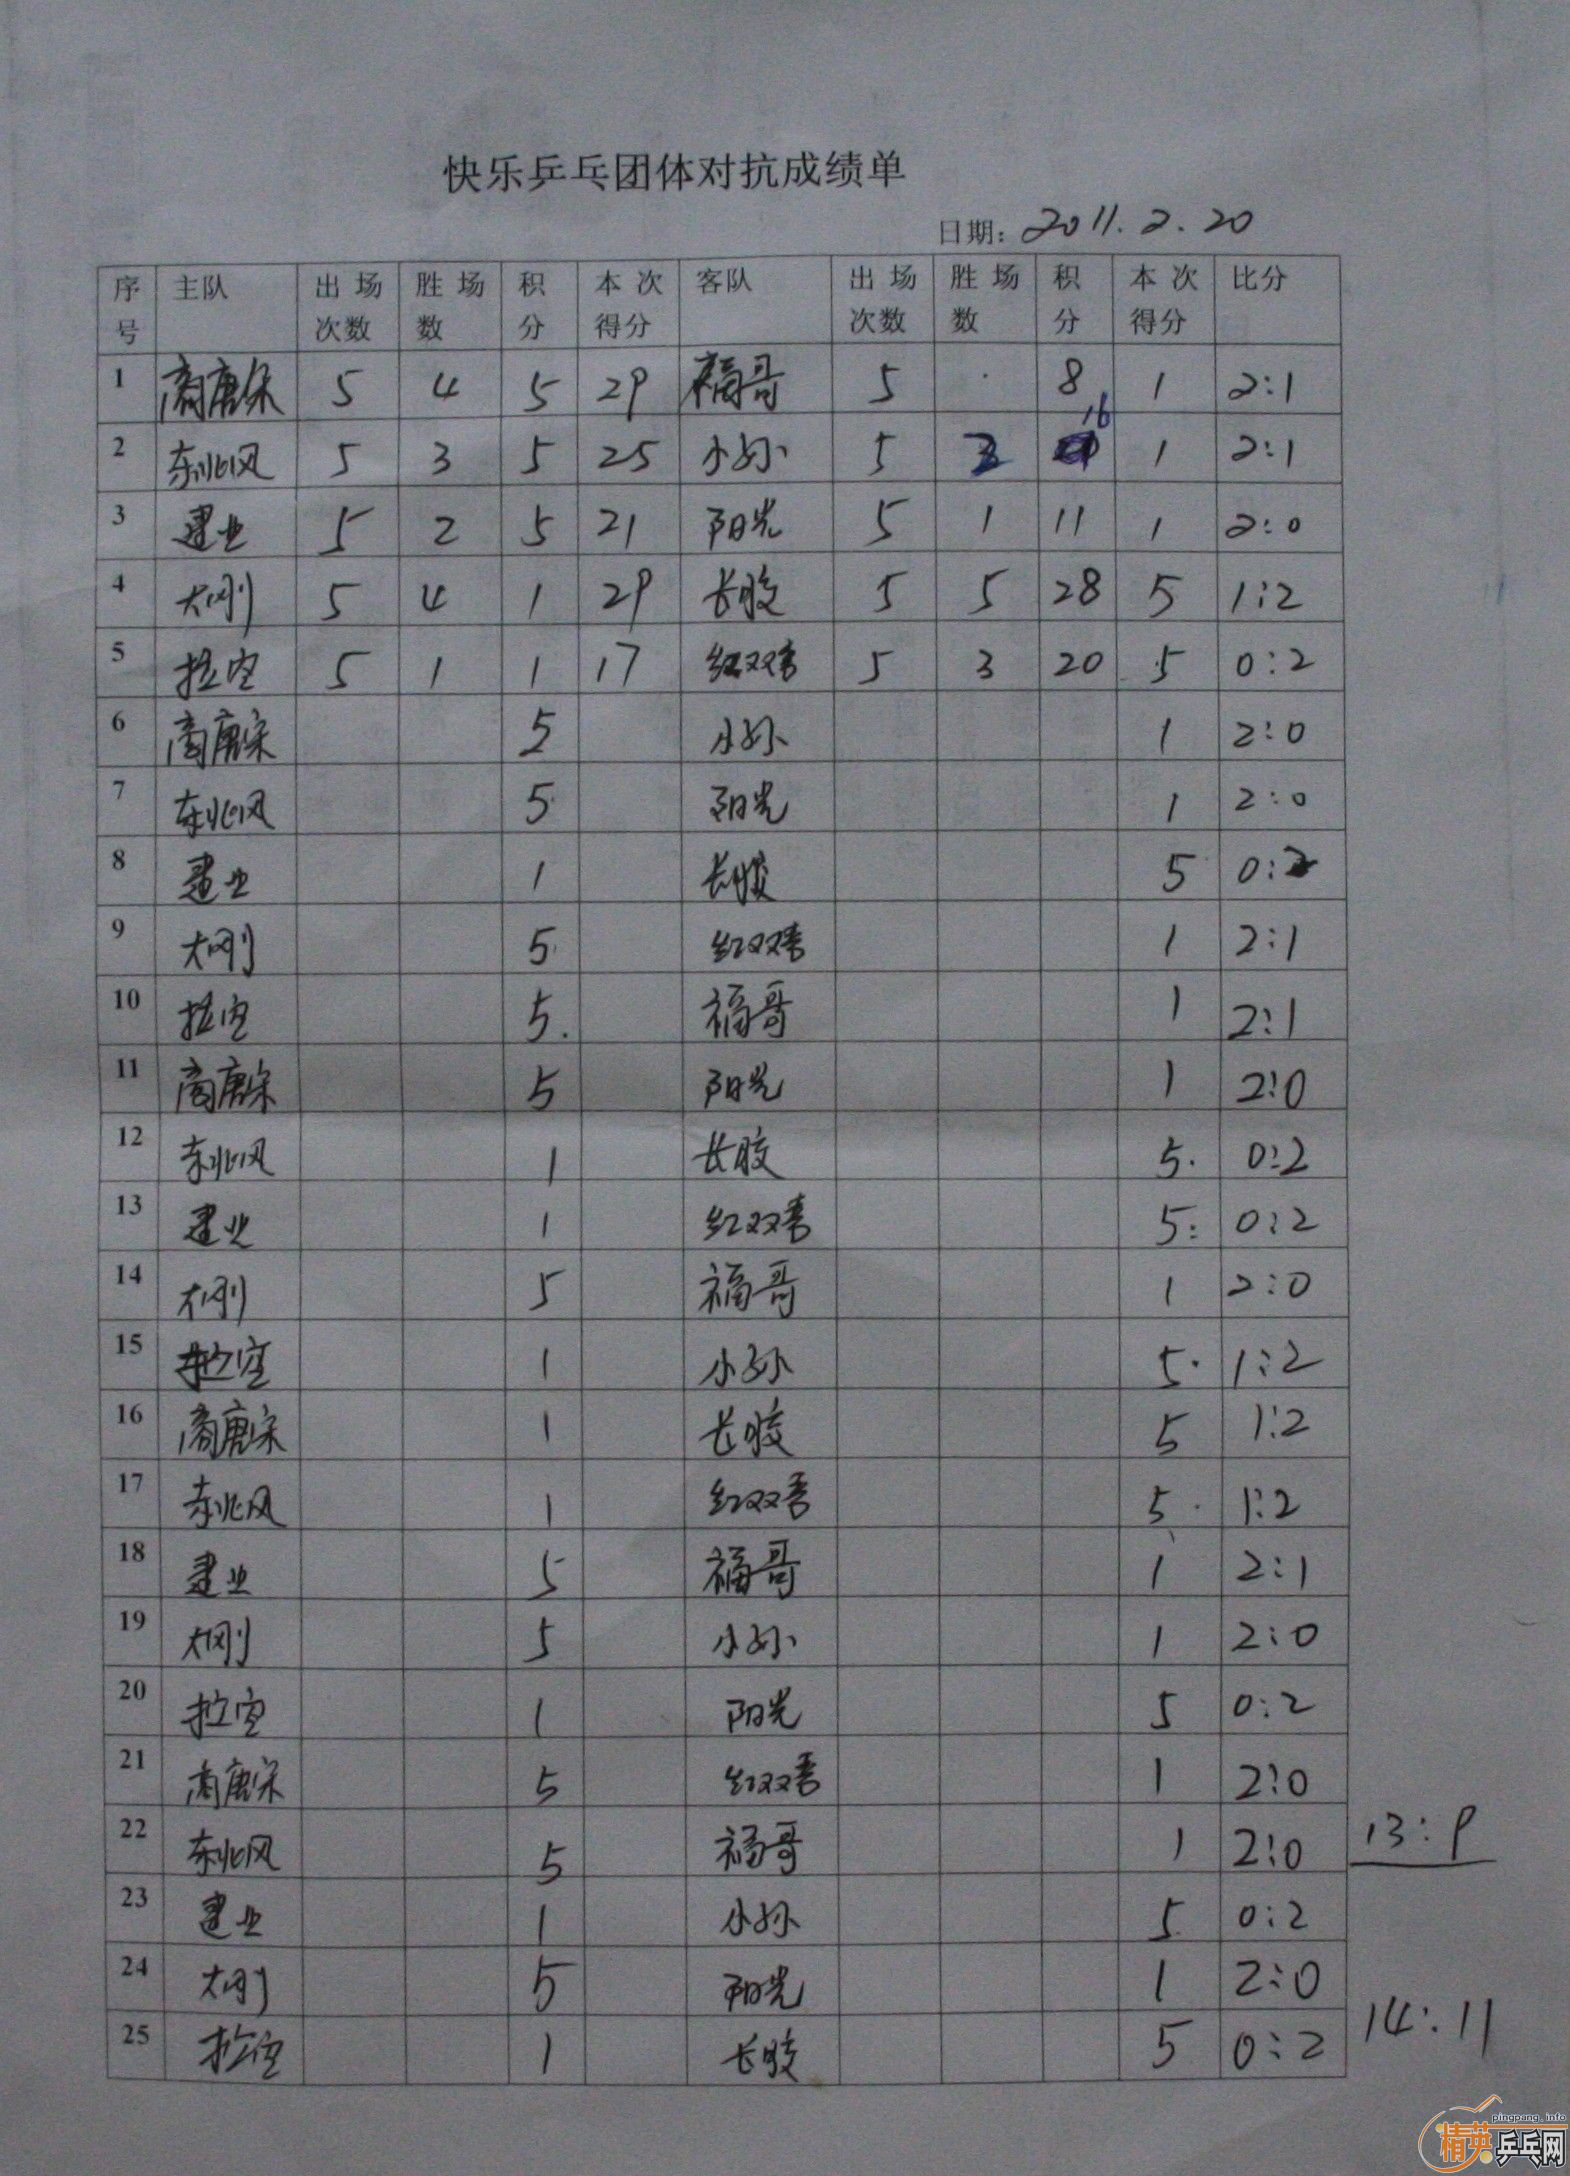 快乐乒乓团体对抗成绩单
日期: 2011.2.20
序号 主队 出场次数 胜场数 积分 本次得分 客队 出场次数 胜场数 积分 本次得分 比分
1 商唐宋 5 4 5 29 福哥 5 8 1 2:1
2 东北风 5 3 5 25 小孙 5 2 16 1 2:1
3 建业 5 2 5 21 阳光 5 1 11 1 2:0
4 大刚 5 4 1 29 长胶 5 5 28 5 1:2
5 拉空 5 1 1 17 红双喜 5 3 20 5 0:2
6 商唐宋 5 小孙 1 2:0
7 东北风 5 阳光 1 2:0
8 建业 1 长胶 5 0:2
9 大刚 5 红双喜 1 2:1
10 拉空 5 福哥 1 2:1
11 商唐宋 5 阳光 1 2:0
12 东北风 1 长胶 5 0:2
13 建业 1 红双喜 5 0:2
14 大刚 5 福哥 1 2:0
15 拉空 1 小孙 5 1:2
16 商唐宋 1 长胶 5 1:2
17 东北风 1 红双喜 5 1:2
18 建业 5 福哥 1 2:1
19 大刚 5 小孙 1 2:0
20 拉空 1 阳光 5 0:2
21 商唐宋 5 红双喜 1 2:0
22 东北风 5 福哥 1 2:0 13:9
23 建业 1 小孙 5 0:2
24 大刚 5 阳光 1 2:0
25 拉空 1 长胶 5 0:2 14:11
pingpang.info
精英乒乓网